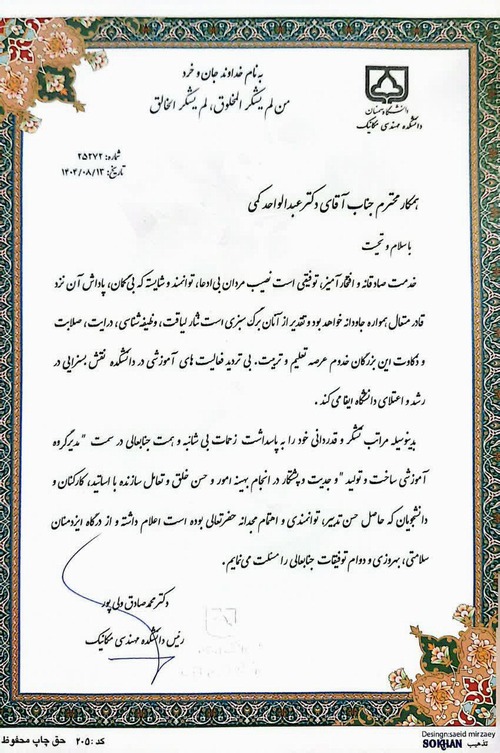 به نام خداوند جان و خرد
من لم یشکر المخلوق، لم یشکر الخالق
دانشگاه سمنان
دانشکده مهندسی مکانیک
شماره: ۲۵۲۷۲
تاریخ: ۱۴۰۴/۰۸/۱۳
همکار محترم جناب آقای دکتر عبدالواحد کمی
با سلام و تحیت
خدمت صادقانه و افتخار آمیز، توفیقی است نصیب مردان بی ادعا، توانمند و شایسته که بی گمان، پاداش آن نزد
قادر متعال همواره جاودانه خواهد بود و تقدیر از آنان برگ سبزی است نثار لیاقت، وظیفه شناسی، درایت، صلابت
و ذکاوت این بزرگان خدوم عرصه تعلیم و تربیت. بی تردید فعالیت های آموزشی در دانشکده نقش بسزایی در
رشد و اعتلای دانشگاه ایفا می کند.
بدینوسیله مراتب تشکر و قدردانی خود را به پاسداشت زحمات بی شائبه و همت جنابعالی در سمت "مدیر گروه
آموزشی ساخت و تولید" و جدیت و پشتکار در انجام بهینه امور و حسن خلق و تعامل سازنده با اساتید، کارکنان و
دانشجویان که حاصل حسن تدبیر، توانمندی و اهتمام مجدانه حضرتعالی بوده است اعلام داشته و از درگاه ایزد منان
سلامتی، بهروزی و دوام توفیقات جنابعالی را مسئلت می نمایم.
دکتر محمد صادق ولی پور
رئیس دانشکده مهندسی مکانیک
کد: ۲۰۵ حق چاپ محفوظ
Design:saeid mirzaey
SOKHAN
تذهیب